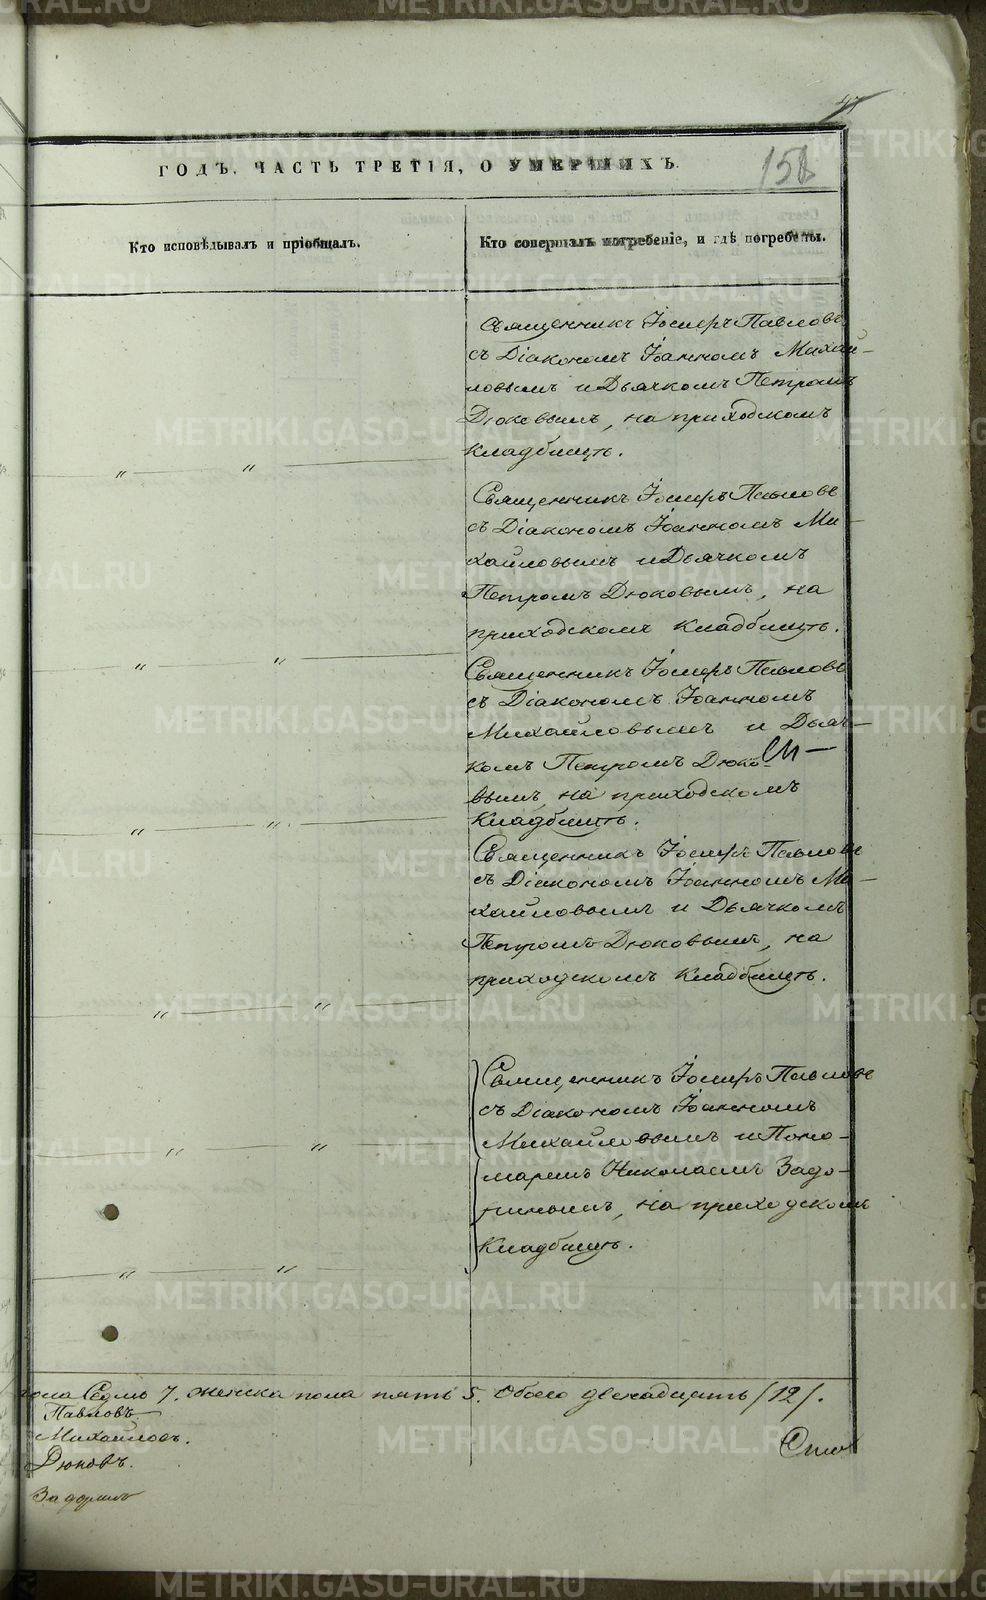 47
ГОДЪ. ЧАСТЬ ТРЕТІЯ, О УМЕРШИХЪ.
151
Кто исповѣдывалъ и пріобщалъ.
Кто совершалъ погребеніе, и гдѣ погребены.
Священникъ Іосифъ Павловъ
съ Діакономъ Іоанномъ Михай-
ловымъ и Дьячкомъ Петромъ
Дюковымъ, на приходскомъ
кладбищѣ.
" "
Священникъ Іосифъ Павловъ
съ Діакономъ Іоанномъ Ми-
хайловымъ и Дьячкомъ
Петромъ Дюковымъ, на
приходскомъ кладбищѣ.
" "
Священникъ Іосифъ Павловъ
съ Діакономъ Іоанномъ
Михайловымъ и Дьяч-
комъ Петромъ Дюко-
вымъ, на приходскомъ
кладбищѣ.
" "
Священникъ Іосифъ Павловъ
съ Діакономъ Іоанномъ Ми-
хайловымъ и Дьячкомъ
Петромъ Дюковымъ, на
приходскомъ кладбищѣ.
" "
Священникъ Іосифъ Павловъ
съ Діакономъ Іоанномъ
Михайловымъ и Поно-
маремъ Николаемъ Задо-
ринымъ, на приходскомъ
кладбищѣ.
" "
" "
пола Седмь 7. женска пола пять 5. Обоего двенадцать /12/.
Павловъ
Михайловъ.
Дюковъ.
Задоринъ
METRIKI.GASO-URAL.RU